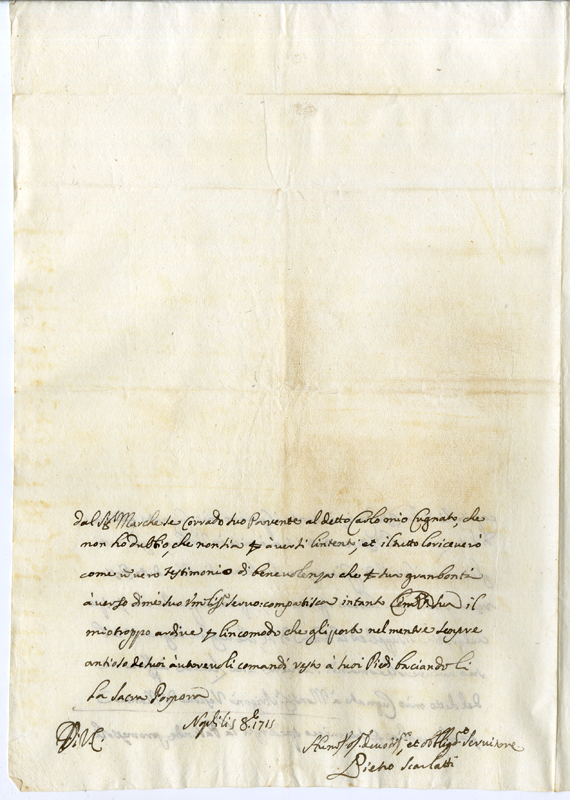 dal Sig.r Marchese Corrado suo Parente al detto Carlo mio Cugnato, che
non ho dubbio che non sia p aversi l'intento, et il tutto lo riceverò
come un vero testimonio di benevolenza che p sua gran bontà
à verso di me suo Um.liss.o servo: compatisca intanto Em.za sua il
mio troppo ardire p l'incomodo che gli porto nel mentre sempre
antioso de suoi autorevoli comandi resto à suoi Piedi baciando li
la Sacra Porpora
Napoli li 8.e 1711
D. V. E.
Hum.o devotis.o, et obblig.o Servitore
Pietro Scarlatti